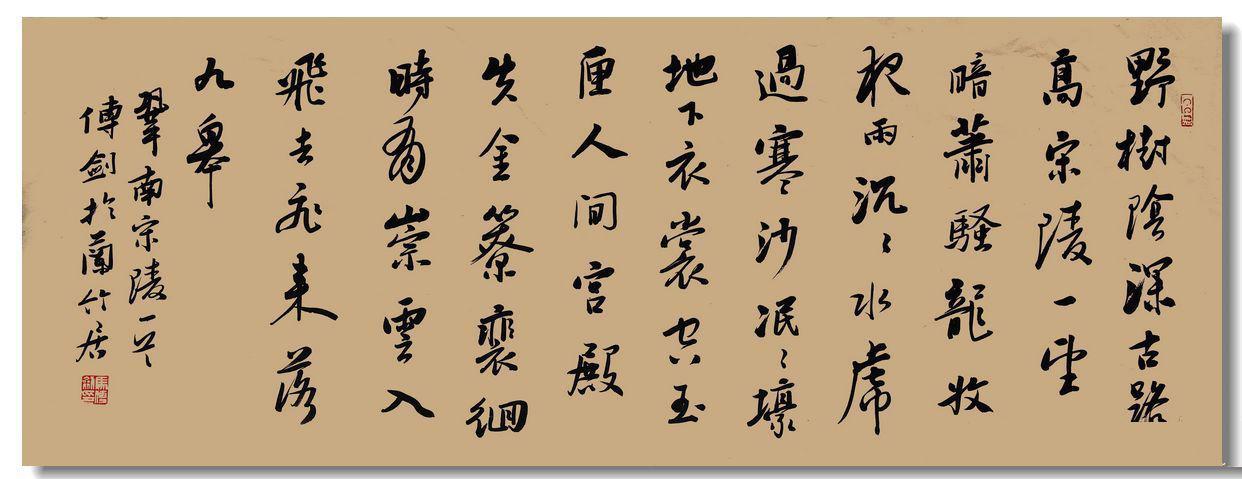 野樹陰深古路
高宗陵一望
暗蕭騷龍收
夜雨沉〻水虎
過寒沙泯〻壕
地下衣裳空玉
匣人間宮殿
失金裵徊
時有崇雲入
飛去飛來落
九皋
鞏南宋陵一首
傳劍於蘭竹居